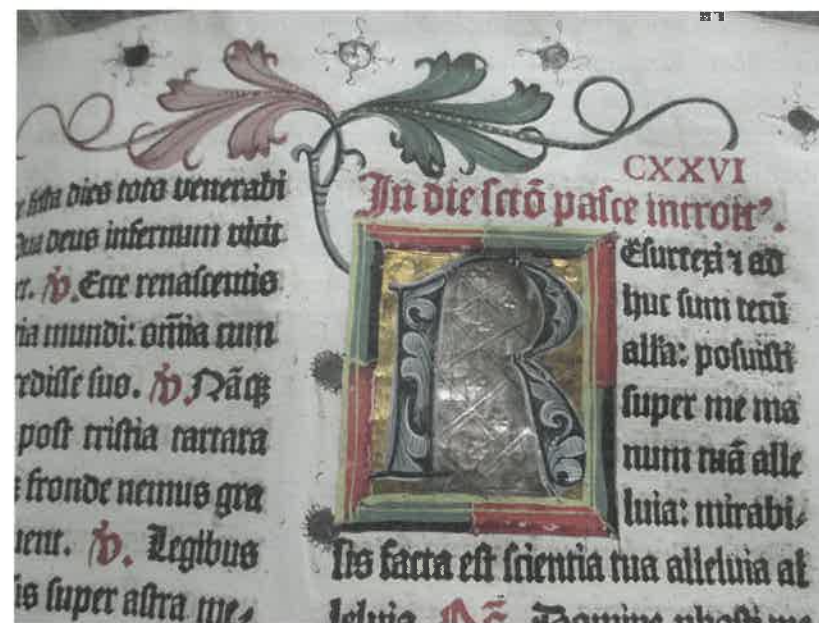 festa dies toto venerabi
Qua deus infernum vicit
et. V̄. Ecce renascentis
ria mundi: om̄ia cum
redisse suo. V̄. Nāqꝫ
post tristia tartara
fronde nemus gra
uent. V̄. Legibus
is super astra me⸗
CXXVI
In die sctō pasce introitꝰ.
REsurrexi ⁊ ad
huc sum tecū
all̄a: posuisti
super me ma
num tuā alle
luia: mirabi⸗
lis facta est scientia tua alleluia al
leluia. Ps̄. Domine ꝓbasti me